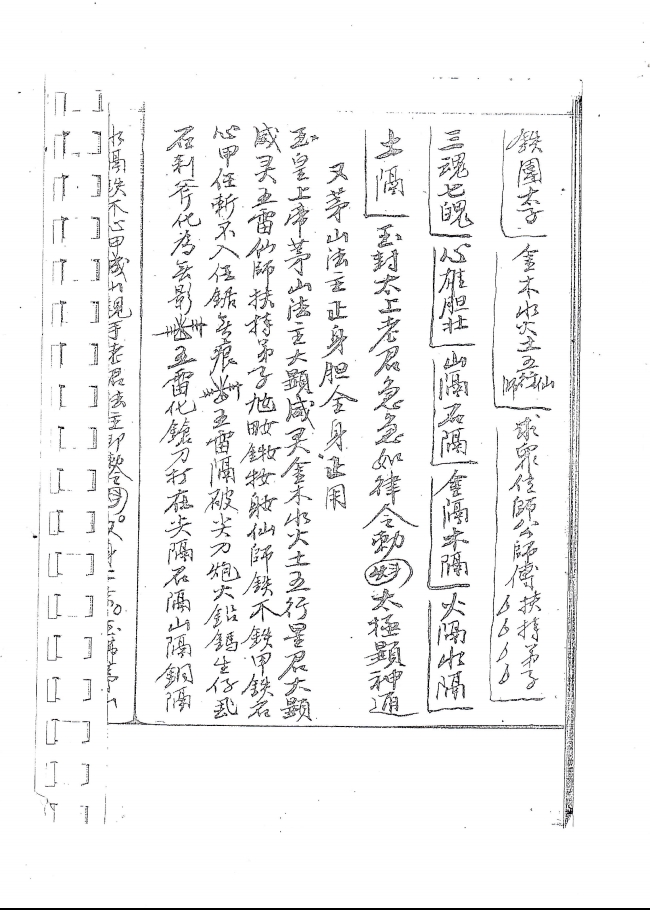 鉄圍太子 金木水火土五行仙師 求眾位師公師傅扶持弟子
三魂七魄 心雄胆壮 山隔石隔 金隔木隔 火隔水隔
土隔 玉封太上老君急急如律令勅 太極顕神通
又茅山法主正身胆全身边用
玉皇上帝茅山法主大顕威灵金木水火土五行星君大顕
威灵五雷仙師扶持弟子 仙師鉄不鉄甲鉄石
心甲任斬不入任鋸無痕 五雷隔破尖刀炮火鉛鎷生仔
石刹斧化為無影 五雷化鎗刀打在尖隔石隔山隔銅隔
水隔鉄不心甲 老君法主